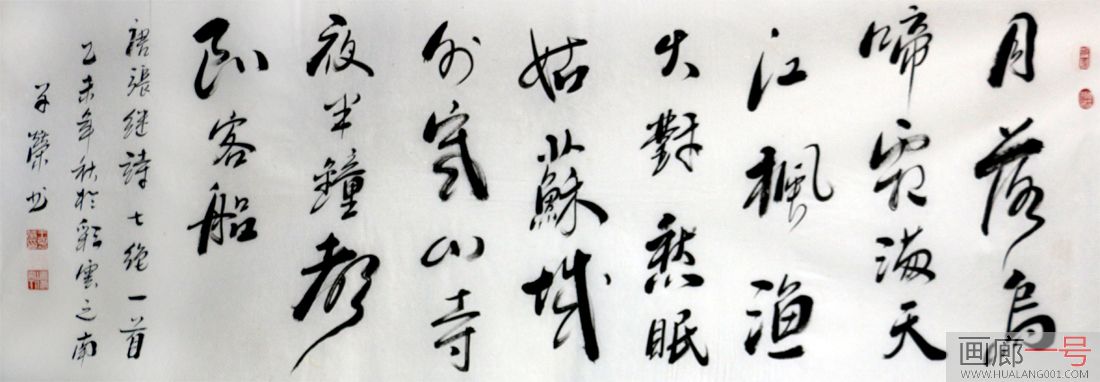 月落烏
啼霜滿天
江楓漁
火對愁眠
姑蘇城
外寒山寺
夜半鐘聲
到客船
唐張継詩七絕一首
乙未年秋於彩雲之南
榮书
画廊一号
WWW.HUALANG001.COM